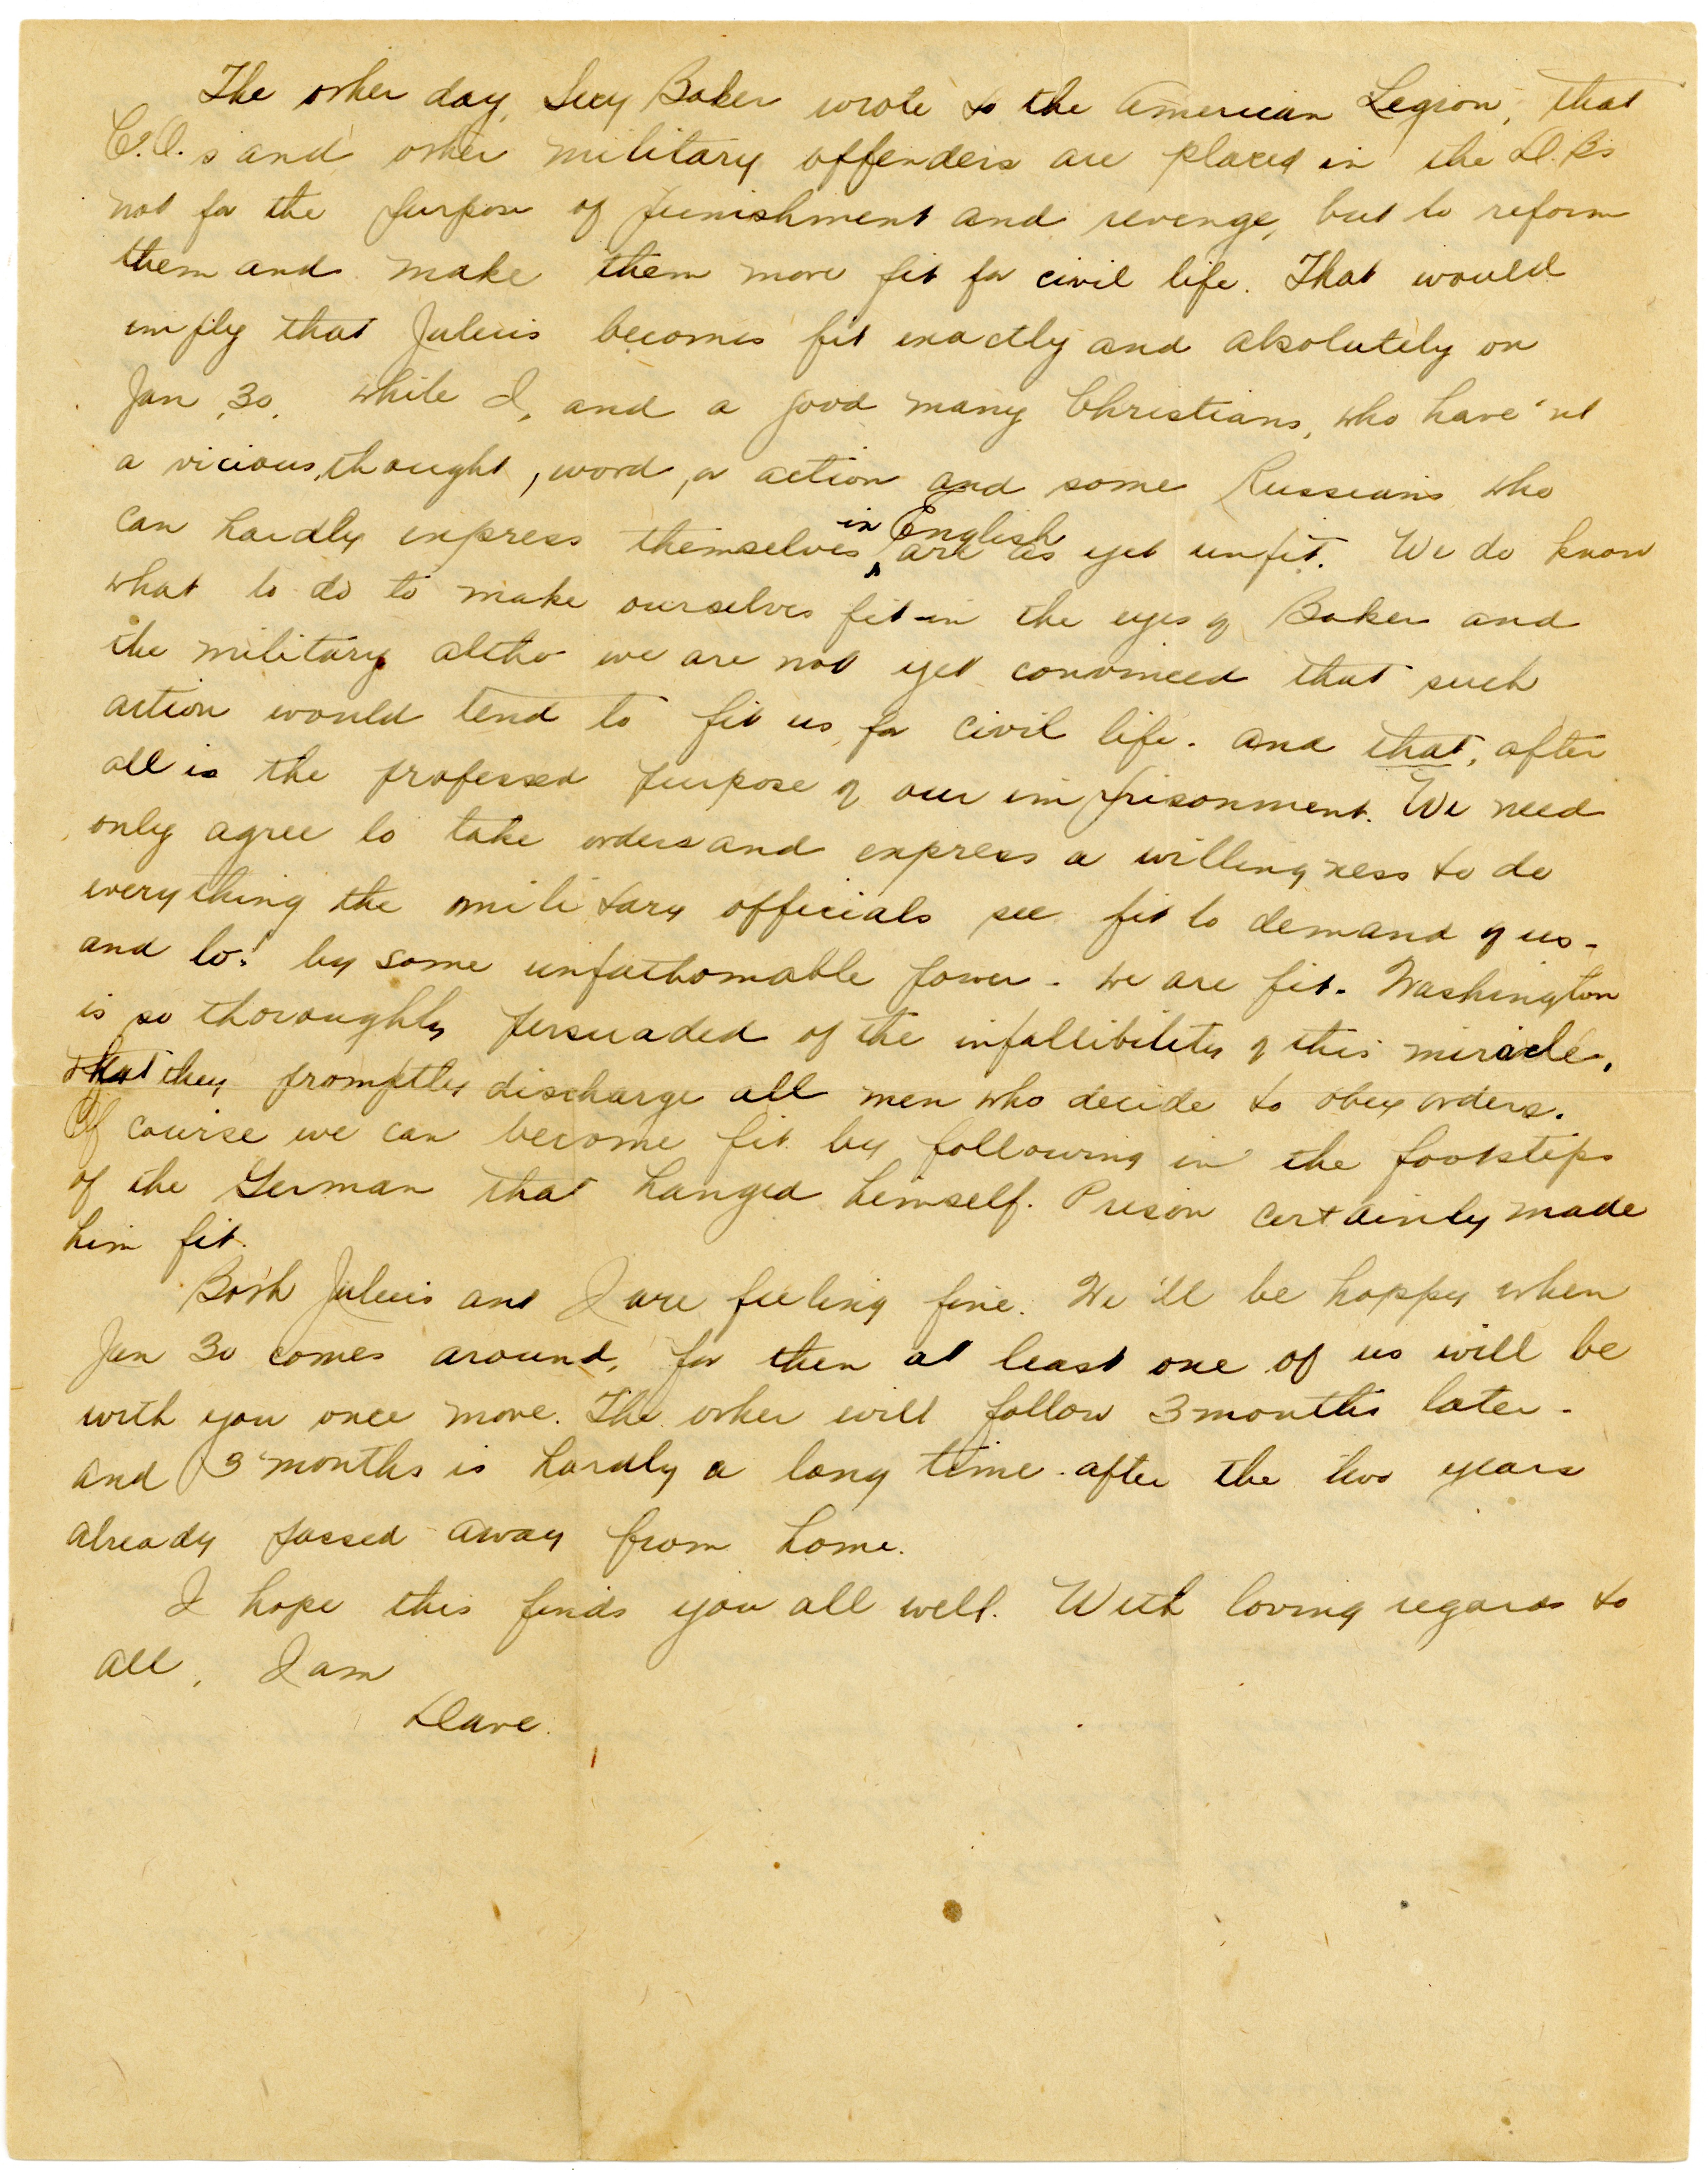 The other day, Secy Baker wrote to the American Legion, that
C.O.s and other military offenders are placed in the D.B.s
not for the purpose of punishment and revenge, but to reform
them and make them more fit for civil life. That would
imply that Julius becomes fit exactly and absolutely on
Jan. 30, while I, and a good many Christians, who have'nt
a vicious, thought, word, or action and some Russians who
can hardly express themselves in English are as yet unfit. We do know
what to do to make ourselves fit in the eyes of Baker and
the military altho we are not yet convinced that such
action would tend to fit us for civil life. And that, after
all is the professed purpose of our imprisonment. We need
only agree to take orders and express a willingness to do
everything the military officials see fit to demand of us -
and lo! by some unfathomable power - we are fit. Washington
is so thoroughly persuaded of the infallibility of this miracle,
that they promptly discharge all men who decide to obey orders.
Of course we can become fit by following in the footsteps
of the German that hanged himself. Prison certainly made
him fit.
Both Julius and I are feeling fine. We'll be happy when
Jan 30 comes around, for then at least one of us will be
with you once more. The other will follow 3 months later -
and 3 months is hardly a long time after the two years
already passed away from home.
I hope this finds you all well. With loving regards to
all, I am
Dave.